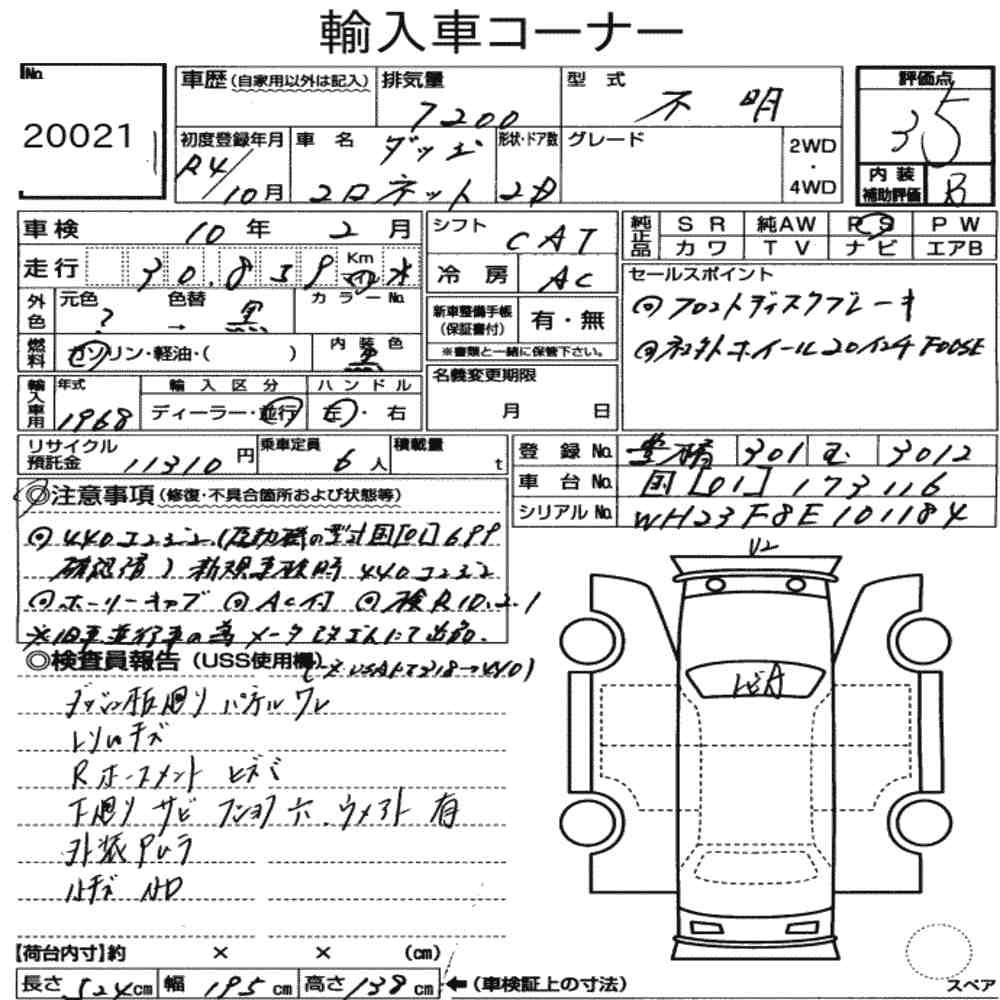 輸入車コーナー
No.
20021
車歴 (自家用以外は記入)
排気量
7200
型式
不明
評価点
35
初度登録年月
R4/10月
車名
ダッヂ
コロネット
形状・ドア数
2D
グレード
2WD
・
4WD
内装
補助評価
B
車検 10年 2月
走行 30,839 Km
シフト
CAT
冷房
AC
純正品
SR 純AW PS PW
カワ TV ナビ エアB
外色
元色 ? → 色替 黒
カラーNo.
燃料
ガソリン・軽油・( )
内装色
黒
新車整備手帳
(保証書付)
有・無
※書類と一緒に保管下さい。
セールスポイント
◎フロントディスクブレーキ
ホイール20インチ FOOSE
輸入車用
年式
1968
輸入区分
ディーラー・並行
ハンドル
左・右
名義変更期限
月 日
リサイクル
預託金
11310円
乗車定員
6人
積載量
t
登録No. 豊橋 301 3012
車台No. 国[01]173116
シリアルNo. WH23F8E101184
◎注意事項 (修復・不具合箇所および状態等)
◎440エンジン(原動機の型式国[01]699
確認済) 新規車検時 440エンジン
◎ホーリーキャブ ◎AC付 ◎検R10.2.1
※旧車並行車の為メーター
◎検査員報告 (USS使用欄)
ダッシュ板廻り パネルワレ
キズ
Rホースメント ヒズミ
下廻り サビ 穴、ウメアト有
外装Pムラ
小キズ 小D
V2
【荷台内寸】約 × × (cm)
長さ 524cm 幅 195cm 高さ 138cm
←(車検証上の寸法)
スペア